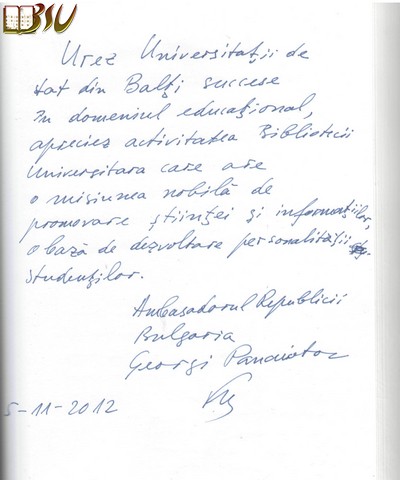 BSU
Urez Universității de
stat din Balți succese
în domeniul educațional,
apreciez activitatea Bibliotecii
Universitara care are
o misiunea nobilă de
promovare științei și informațiilor,
o bază de dezvoltare personalității
studenților.
Ambasadorul Republicii
Bulgaria
Georgi Panaiotov
5-11-2012